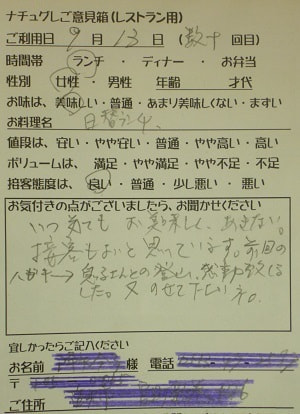 ナチュグしご意見箱(レストラン用)
ご利用日 9月 13日 (数十回目)
時間帯 ランチ ・ ディナー ・ お弁当
性別 女性 ・ 男性 年齢 才代
お味は、美味しい・普通・あまり美味しくない・まずい
お料理名 日替ランチ、
値段は、安い・やや安い・普通・やや高い・高い
ボリュームは、満足・やや満足・やや不足・不足
接客態度は、良い・普通・少し悪い・悪い
お気付きの点がございましたら、お聞かせください
いつ来ても お美味しく、あきない。
接客もよいと思っています。前回の
さんとの登山、感動致しま
した。又のせて下さいネ。
宜しかったらご記入ください
お名前 様 電話
〒
ご住所